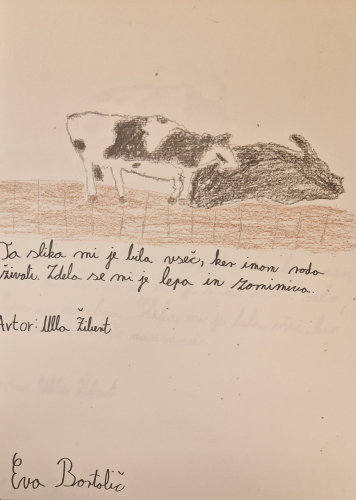 Ta slika mi je bila všeč, ker imam rada
živali. Zdela se mi je lepa in zanimiva.
Avtor: Ulla Žibert
Eva Bostolič